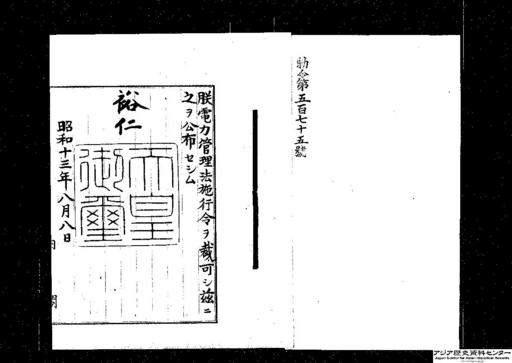 勅令第五百七十五號
朕電力管理法施行令ヲ裁可シ茲ニ
之ヲ公布セシム
裕仁
天皇御璽
昭和十三年八月八日
内閣
アジア歴史資料センター
Japan Center for Asian Historical Records